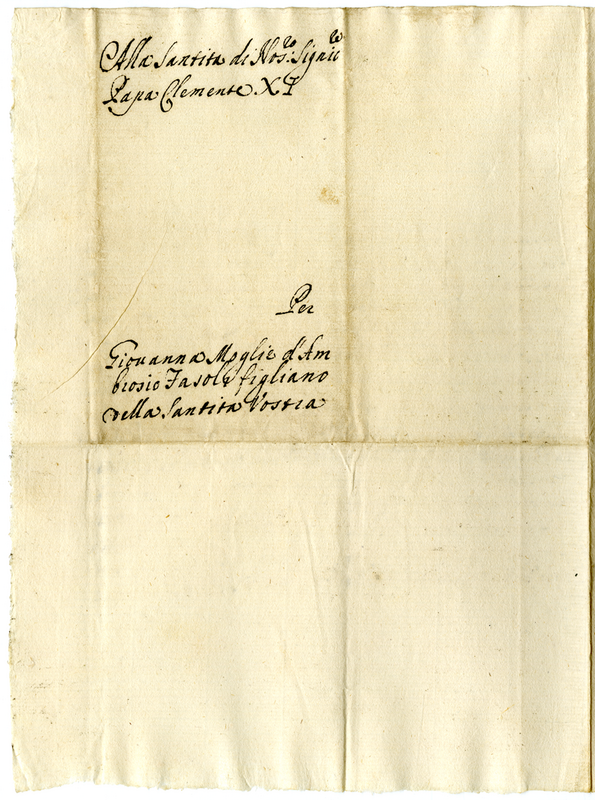 Alla Santita di Nos.ro Signie re
Papa Clemente XI
Per
Giovanna Moglie d'Am
brosio Fasoli figliano
della Santita Vostra